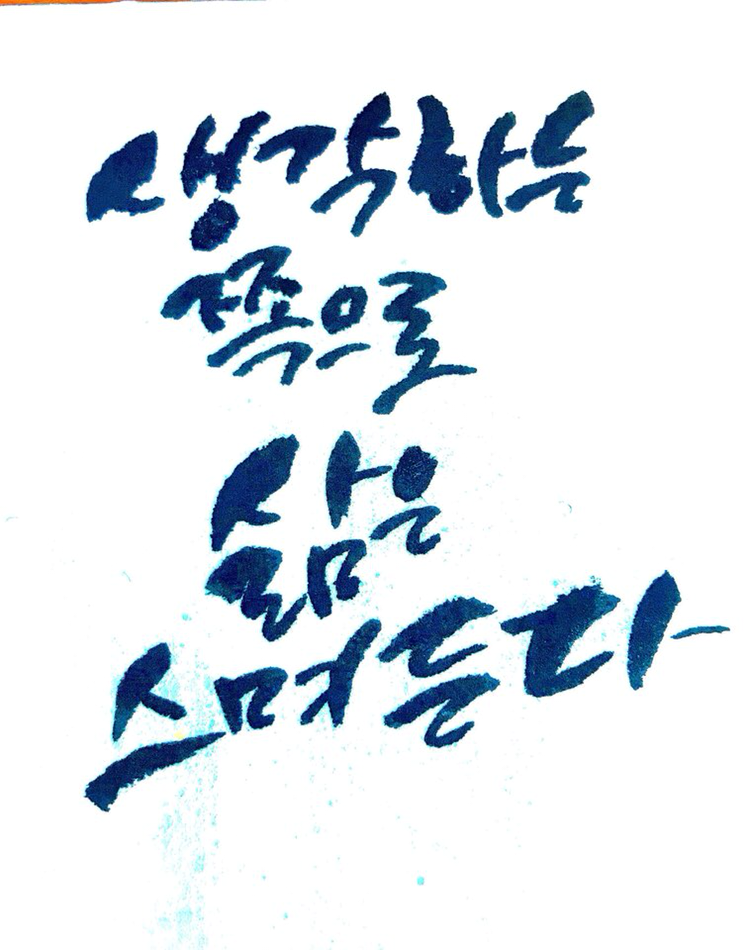 생각하는
쪽으로
삶은
스며든다